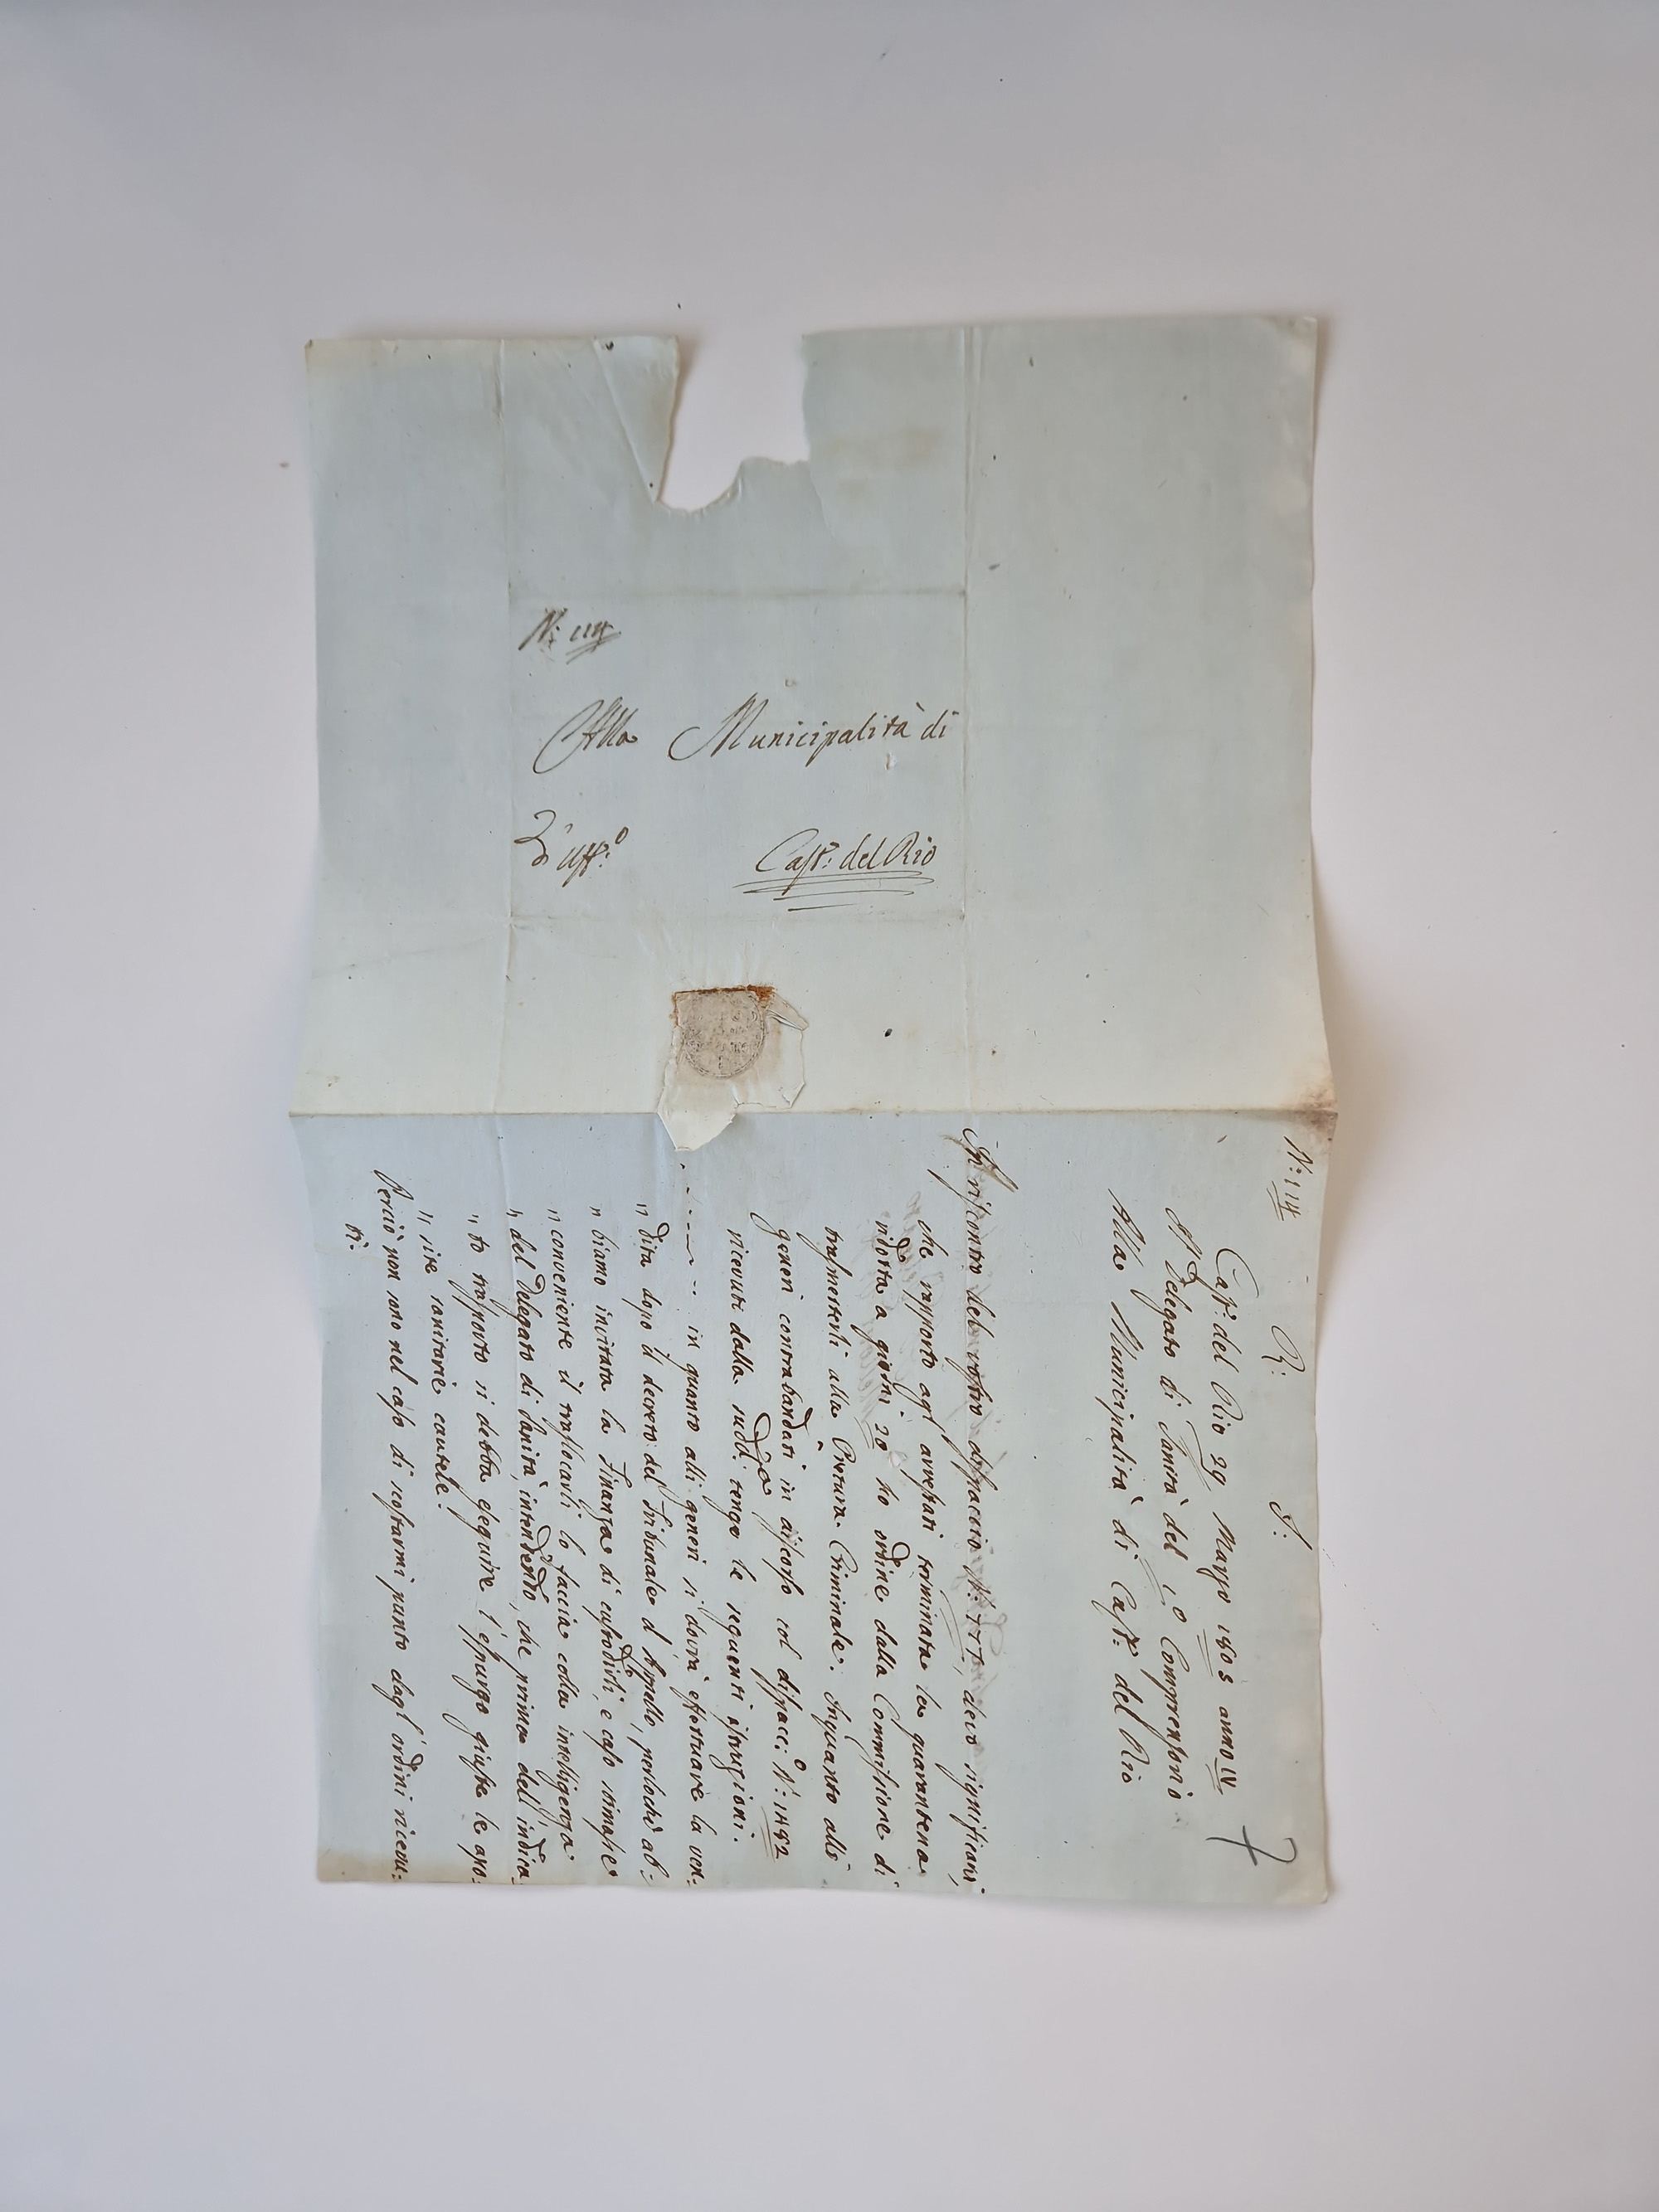 N: 114
Alla Municipalità di
D' Uff:º
Cast: del Rio
N: 114
R: I:
Cast: del Rio 29 Marzo 1805 anno IV
Il Delegato di Sanità del 1º Comprensorio
Alla Municipalità di Cast: del Rio
7
In riscontro del vostro dispaccio N: devo significarvi,
che rapporto agl' arrestati terminata la quarantena
ridotta a giorni 20 ho ordine dalla Commissione di
trasmetterli alla Pretura Criminale. Inquanto alli
generi contrabandati in discorso col dispacc:º N: 1492
ricevuti dalla sudd:ª tengo le seguenti istruzioni.
in quanto alli generi si dovrà effettuare la ven:
" dita dopo il decreto del Tribunale d'Appello, perlochè ab:
" biamo invitata la Finanza di custodirli, e caso rimasse
" conveniente il traslocarli lo faccia colla intelligenza
" del Delegato di Sanità, intendendo, che prima dell' indica:
" to trasporto si debba eseguire l'espurgo giusta le apo:
" site sanitarie cautele.
Perciò non sono nel caso di scostarmi punto dagl' ordini ricevu:
ti.